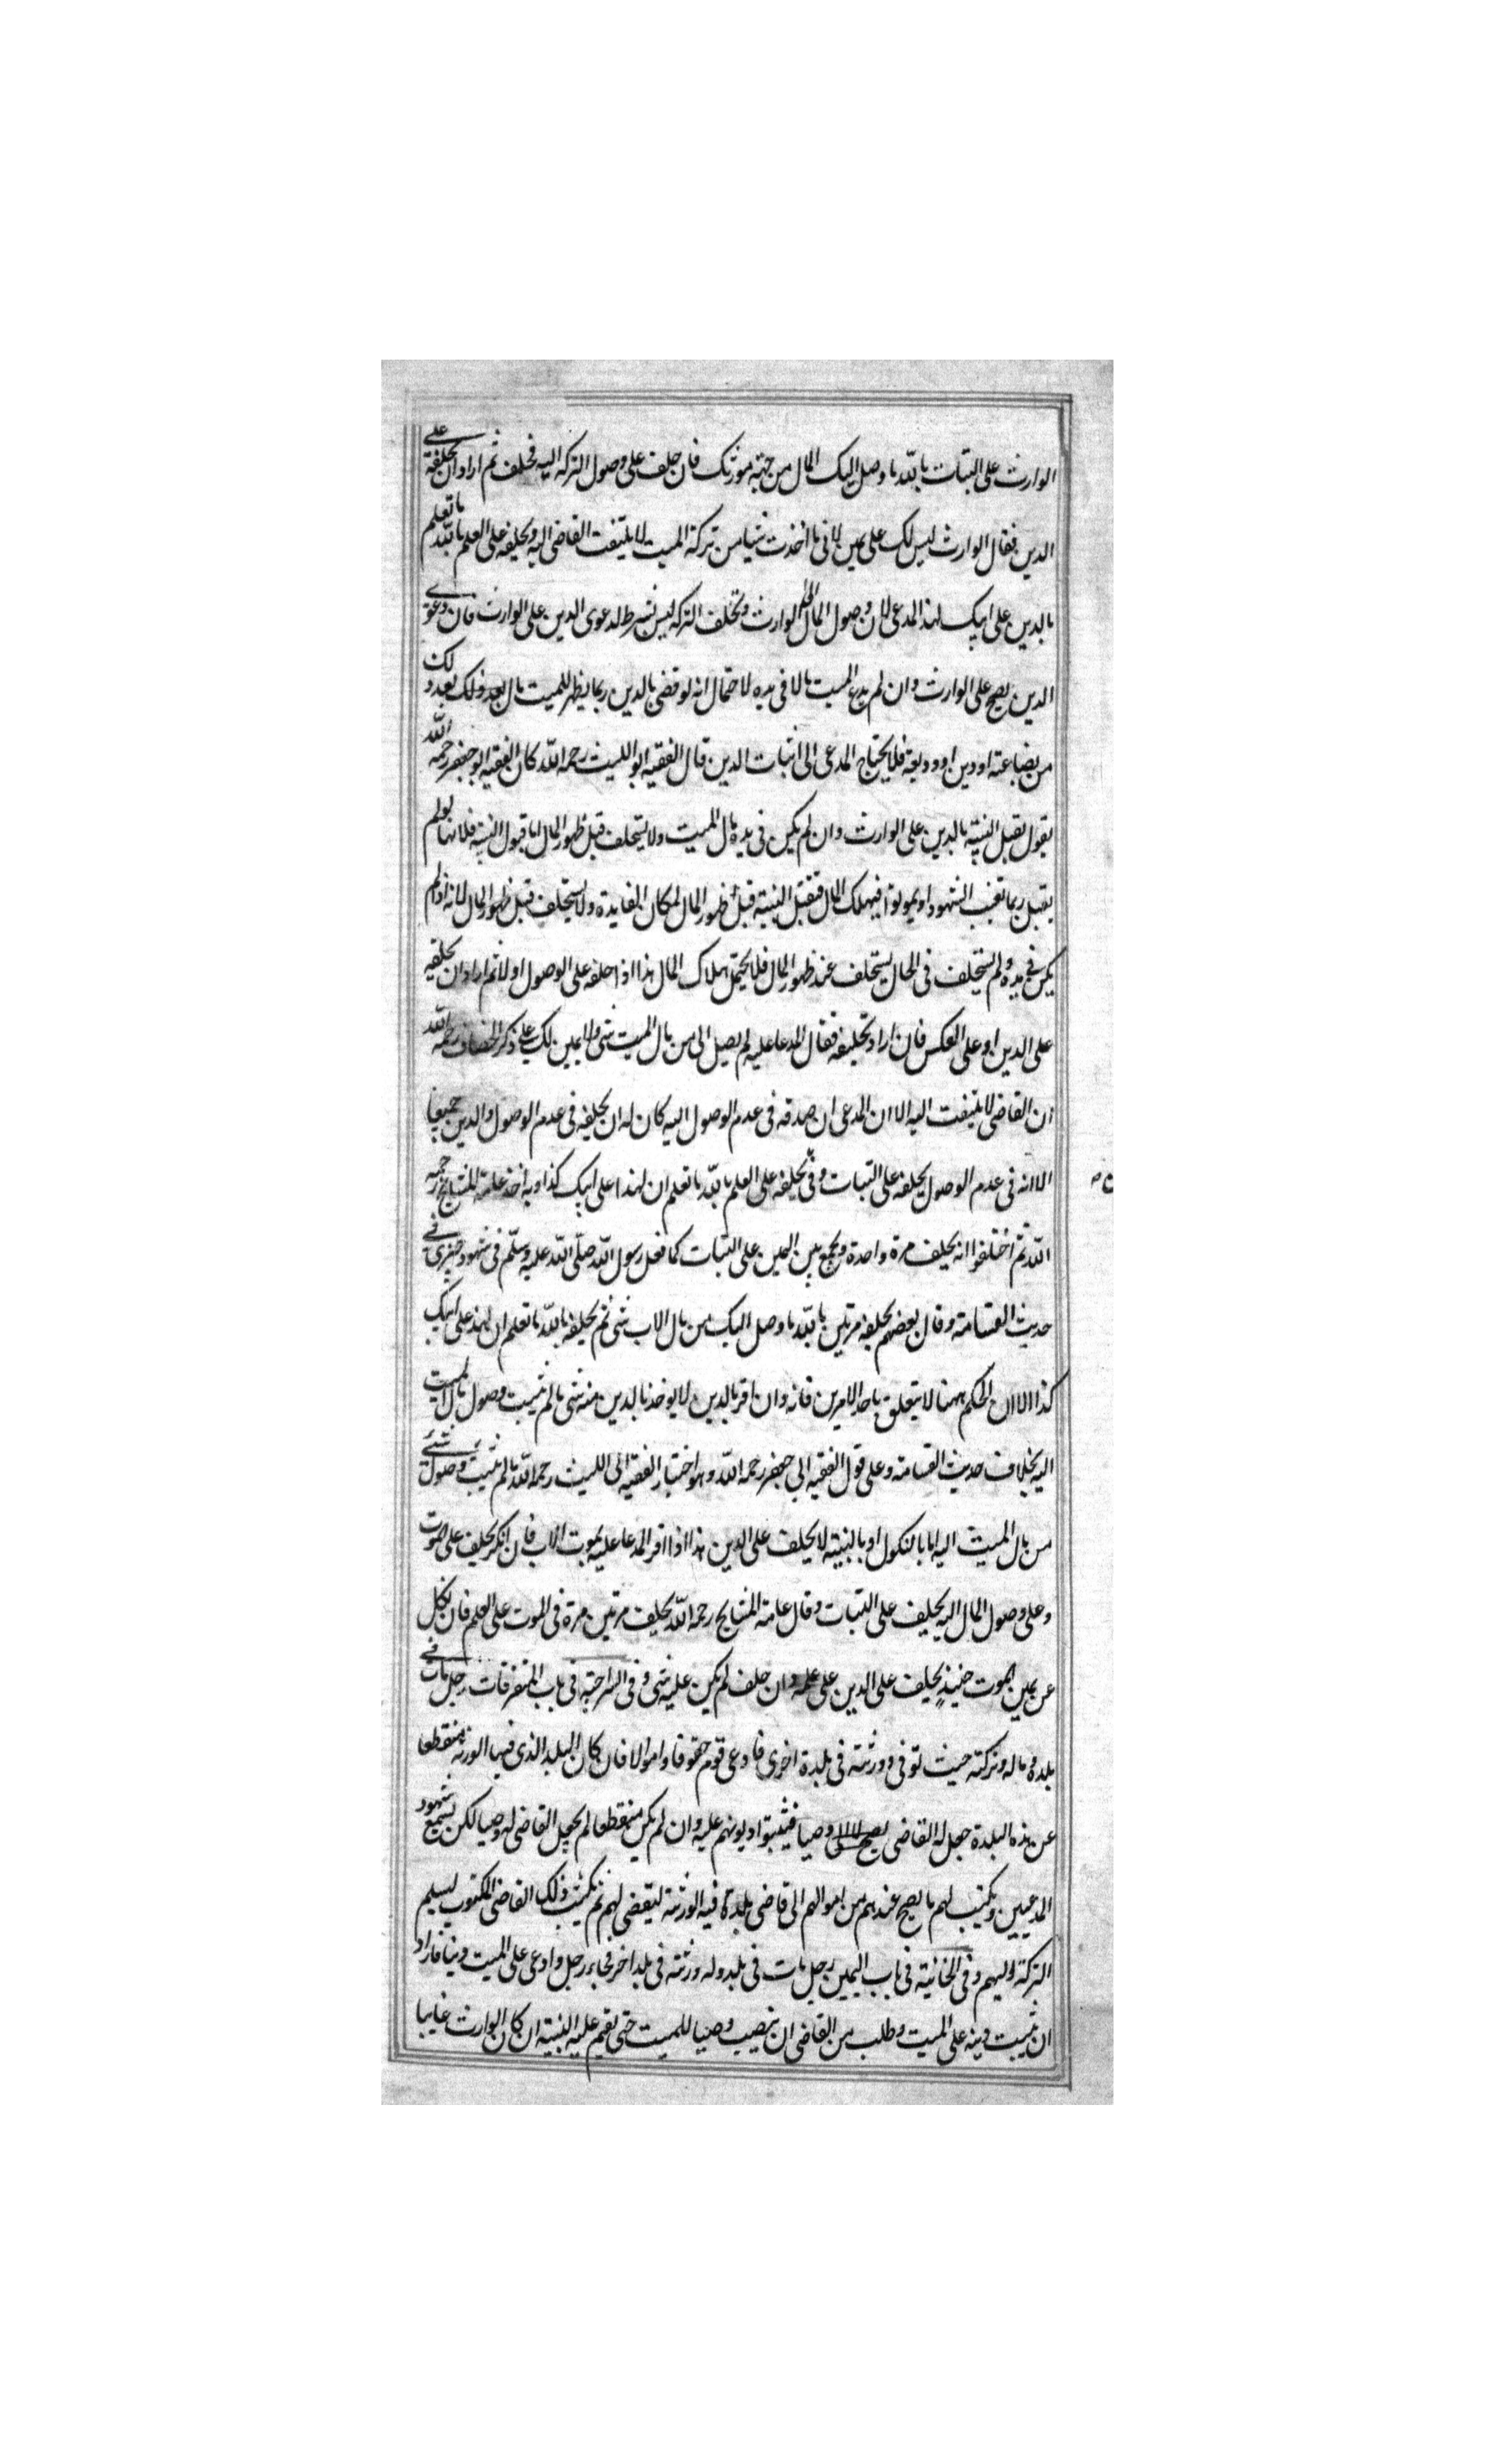 الوارث على البتات بالله ما وصل اليك المال من جهة مورثك فان حلف على وصول التركة اليه فحلف ثم اراد ان يحلفه على
الدين فقال الوارث ليس لك على يمين لانى ما اخذت شيا من تركة الميت لا يلتفت القاضى اليه ويحلفه على العلم بالله ما تعلم
بالدين على ابيك لهذا المدعى لان وصول المال الى الوارث وتخلف التركة ليس بشرط لدعوى الدين على الوارث فان دعوى
الدين يصح على الوارث وان لم يدع الميت مالا فى يده لاحتمال انه لو قضى بالدين ربما يظهر للميت مال بعد ذلك بعد ذلك
من بضاعته او دين او وديعة فلا يحتاج المدعى الى اثبات الدين قال الفقيه ابو الليث رحمه الله كان الفقيه ابو جعفر رحمه الله
يقول يقبل البينة بالدين على الوارث وان لم يكن فى يده مال الميت ولا يستحلف قبل ظهور المال اما قبول البينة فلانها لو لم
يقبل ربما تغيب الشهود او يموتوا فيهلك المال فتقبل البينة قبل ظهور المال لمكان الفايدة ولا يستحلف قبل ظهور المال لانه اذا لم
يكن فى يده ولم يستحلف فى الحال يستحلف عند ظهور المال فلا يحتمل هلاك المال هذا اذا حلفه على الوصول اولا ثم اراد ان يحلفه
على الدين او على العكس فان اراد تحليفه فقال المدعا عليه لم يصل الى من مال الميت شى ولا يمين لك على ذكر الخصاف رحمه الله
ان القاضى لا يلتفت اليه الا ان المدعى ان صدقه فى عدم الوصول اليه كان له ان يحلفه فى عدم الوصول والدين جميعا
الا انه فى عدم الوصول يحلفه على البتات وفى يحلفه على العلم بالله ما تعلم ان لهذا على ابيك كذا وبه اخذ عامة المشايخ رحمه
الله ثم اختلفوا انه يحلف مرة واحدة ويجمع بين اليمين على البتات كما فعل رسول الله صلى الله عليه وسلم فى شهود خيبرى فى
حديث القسامة وقال بعضهم يحلفه مرتين بالله ما وصل اليك من مال الاب شى ثم يحلفه بالله ما تعلم ان لهذا على ابيك
كذا الا ان الحكم ههنا لا يتعلق باحد الامرين فانه وان اقر بالدين لا يوخذ بالدين منه شى ما لم يثبت وصول مال الميت
اليه بخلاف حديث القسامة وعلى قول الفقيه ابى جعفر رحمه الله وهو اختيار الفقيه ابى الليث رحمه الله ما لم يثبت وصول شئ
من مال الميت اليه اما بالنكول او بالبينة لا يحلف على الدين هذا اذا اقر المدعا عليه بموت الاب فان انكر يحلف على موت
وعلى وصول المال اليه يحلف على البتات وقال عامة المشايخ رحمه الله يحلف مرتين مرة فى الموت على العلم فان نكل
عن يمين الموت حينيذ يحلف على الدين على علمه وان حلف لم يكن عليه شى وفى السراجية فى باب المتفرقات رجل مات فى
بلدة وماله وتركته حيث توفى وورثته فى بلدة اخرى فادعى قوم حقوقا واموالا فان كان البلد الذى فيها الورثة منقطعا
عن هذه البلدة جعل له القاضى وصيا فيثبتوا ديونهم عليه وان لم يكن منقطعا لم يجعل القاضى له وصيا لكن يسمع شهود
المدعيين ويكتب لهم ما يصح عندهم من اموالهم الى قاضى بلدة فيه الورثة ليقضى لهم ثم يكتب ذلك القاضى المكتوب ليسلم
التركة اليهم وفى الخانية فى باب اليمين رجل مات فى بلد وله ورثته فى بلد اخر فجاء رجل وادعى على الميت دينا فاراد
ان يثبت دينه على الميت وطلب من القاضى ان ينصب وصيا للميت حتى يقيم عليه البينة ان كان الوارث غايبا